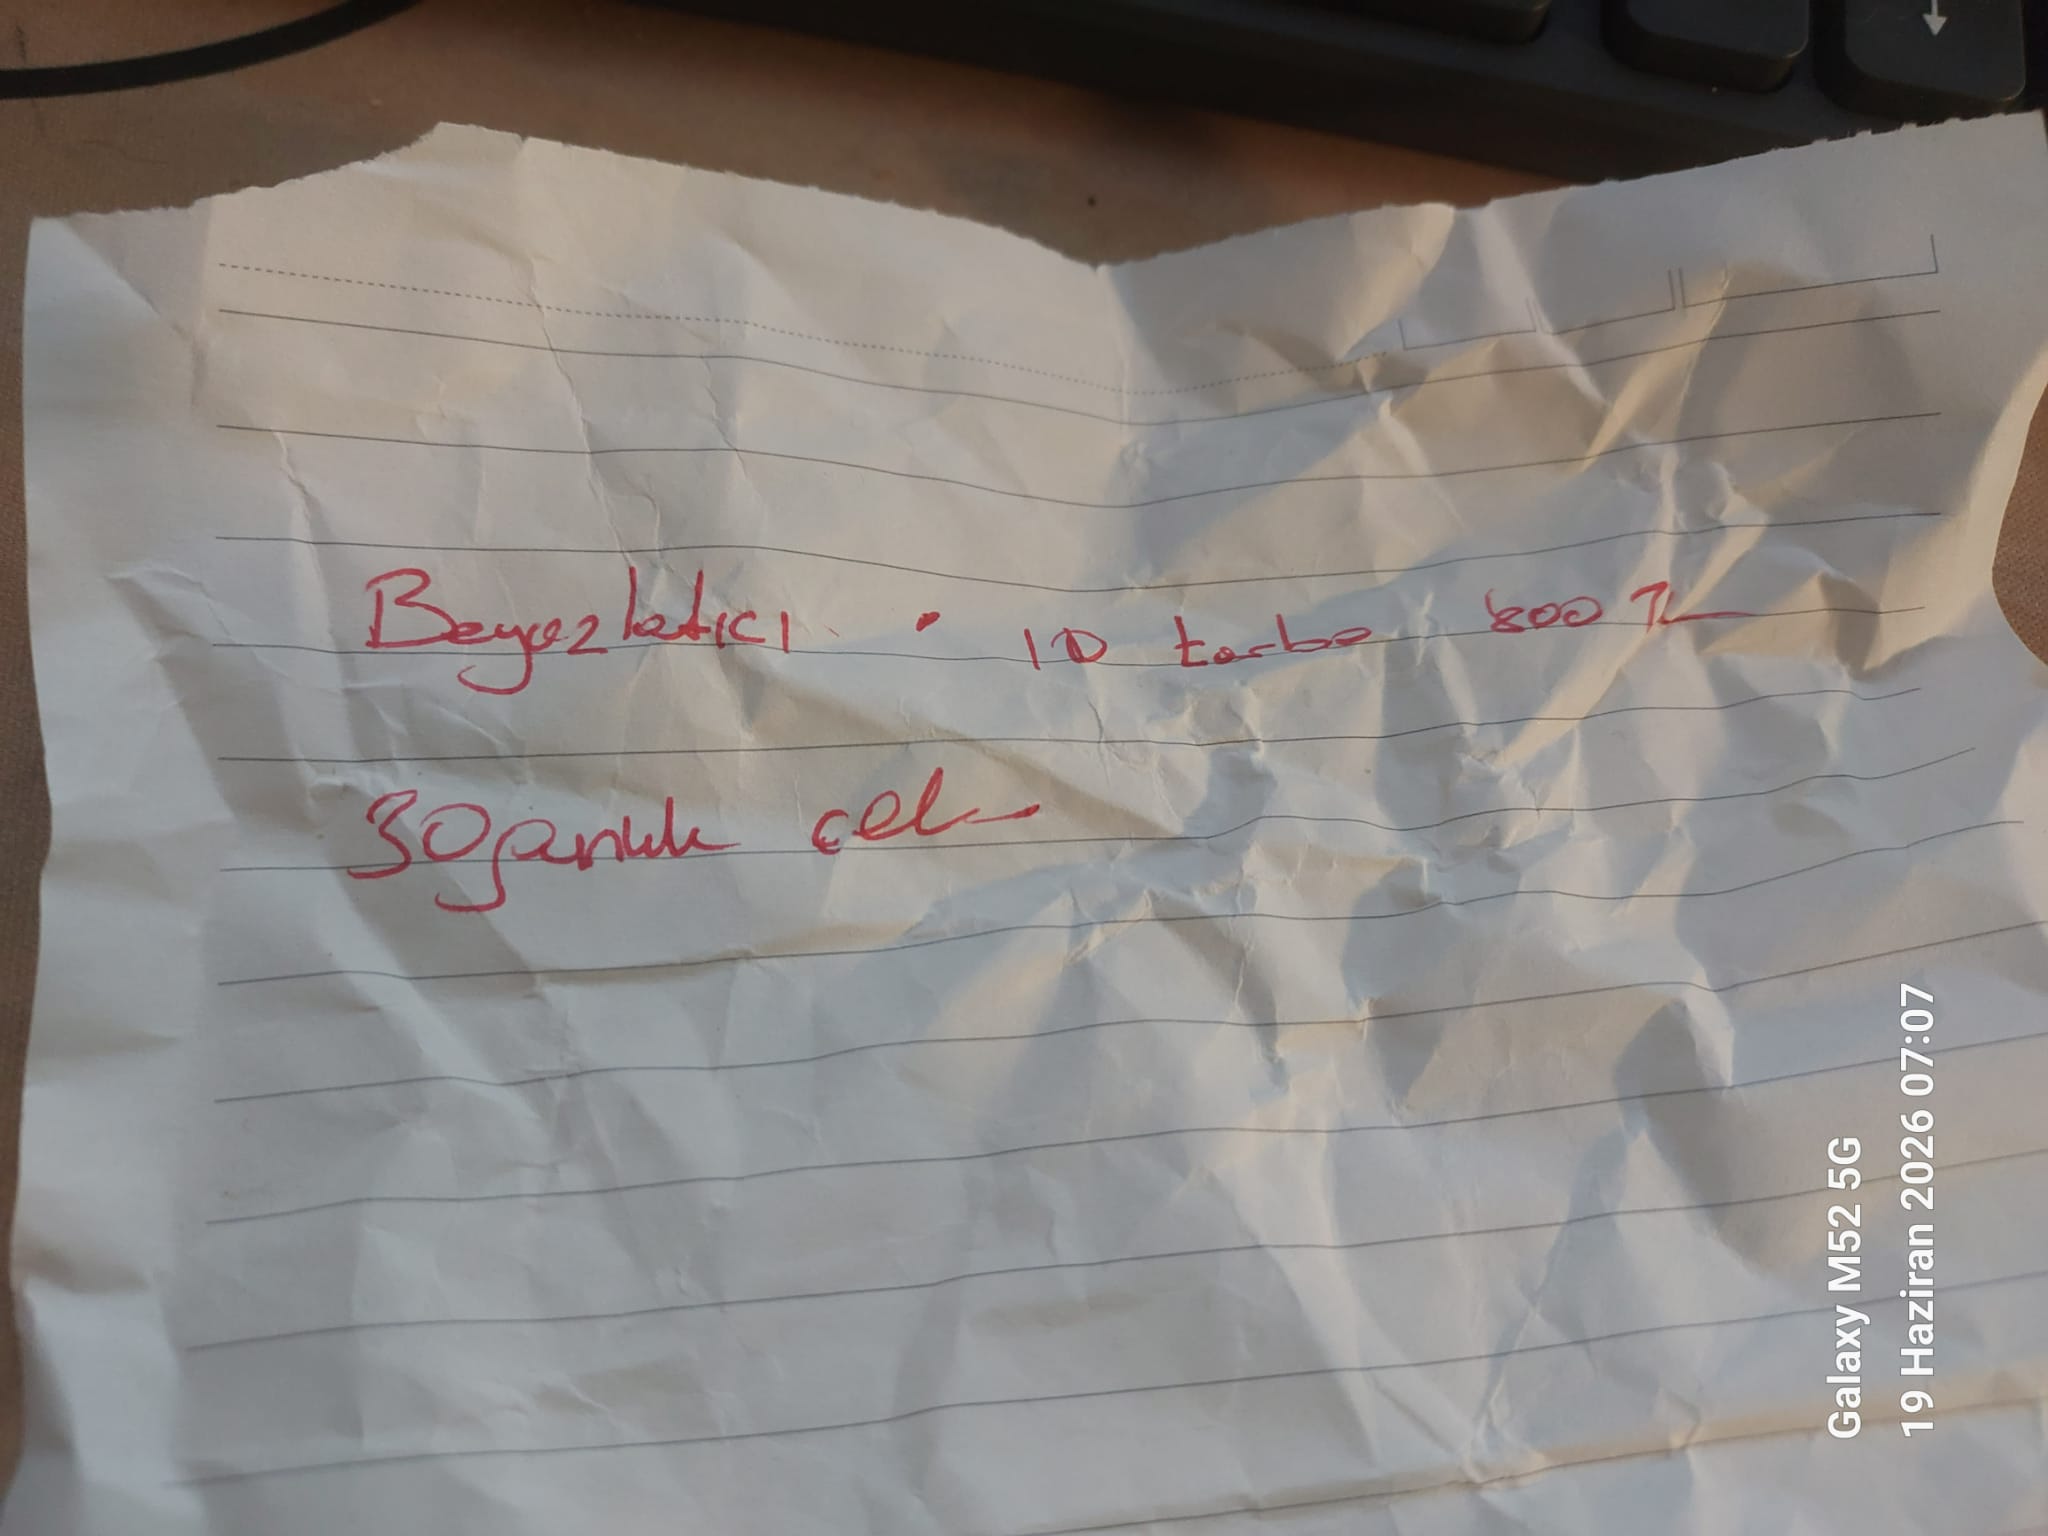 Beyazlatıcı • 10 torba 800 TL
30 günlük çek
Galaxy M52 5G
19 Haziran 2026 07:07